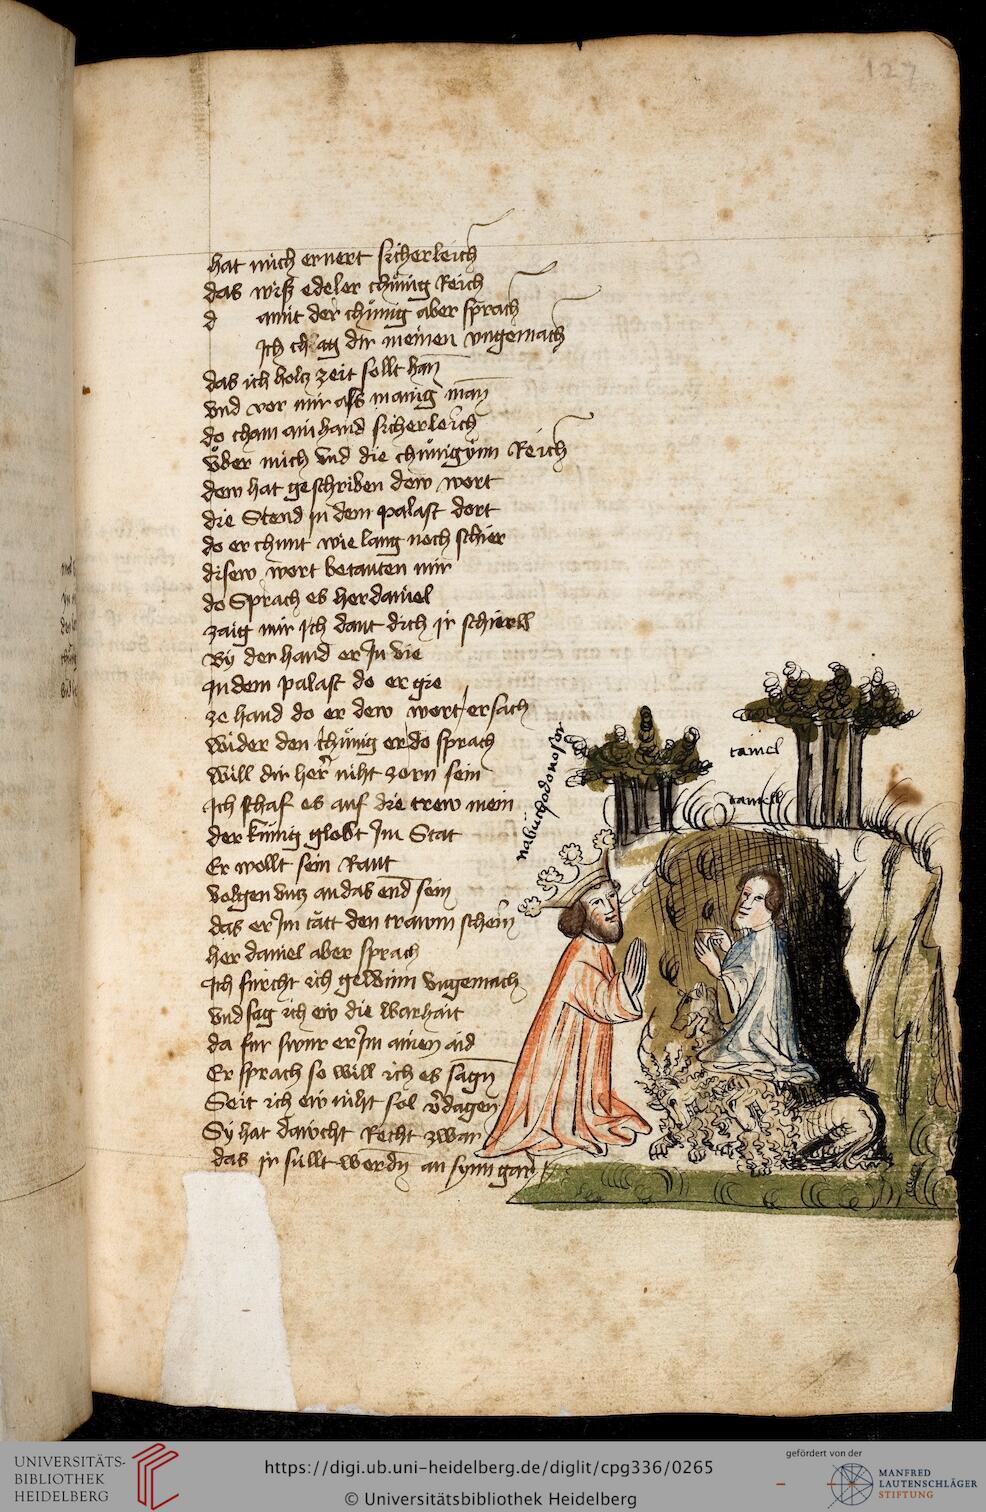 127
hat mich ernert sicherleich
das wiß edeler chünig Reich
d amit der chünig aber sprach
Ich chlag dir meinen vngemach
das ich holtz zeit sollt han
vnd vor mir ass manig man
do cham ain hand sicherleich
v̊ber mich vnd die chünigynn Reich
dew hat geschriben dew wort
die Stend jn dem palast dort
do er chumt wie lang noch schier
disew wort betauten mir
do Sprach es her daniel
zaig mir Ich daut dich jr schierll
By der hand er In vie
In dem palast do er gie
ze hand do er dew wort ersach
wider den chünig er do sprach
will dir herr niht zorn sein
Ich schaf es auf die trew mein
der künig globt Im Stat
Er wollt sein Raut
volgen vntz an das end sein
das er Im tätt den trawm schein
her daniel aber sprach
Ich furcht ich gewinn vngemach
vnd sag ich ew die warhait
da fur swur er Im ainen aid
Er sprach so will ich es sagn
Seit ich ew niht sol v̄dagen
Sy hat dawcht Recht zwar
das jr sullt werdn an synn gar
nabuchodonosor
daniel
daniell
UNIVERSITÄTS-
BIBLIOTHEK
HEIDELBERG
https://digi.ub.uni-heidelberg.de/diglit/cpg336/0265
© Universitätsbibliothek Heidelberg
gefördert von der
MANFRED
LAUTENSCHLÄGER
STIFTUNG